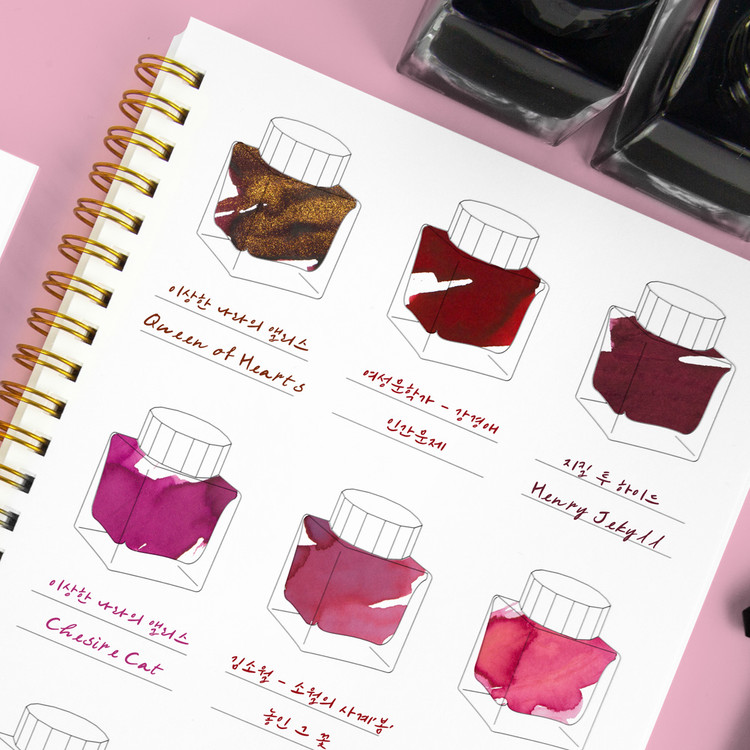 이상한 나라의 앨리스
Queen of Hearts
여성문학가 - 강경애
인간문제
지킬 투 하이드
Henry Jekyll
이상한 나라의 앨리스
Chesire Cat
김소월 - 소월의 사계'봄'
놓인 그 꽃